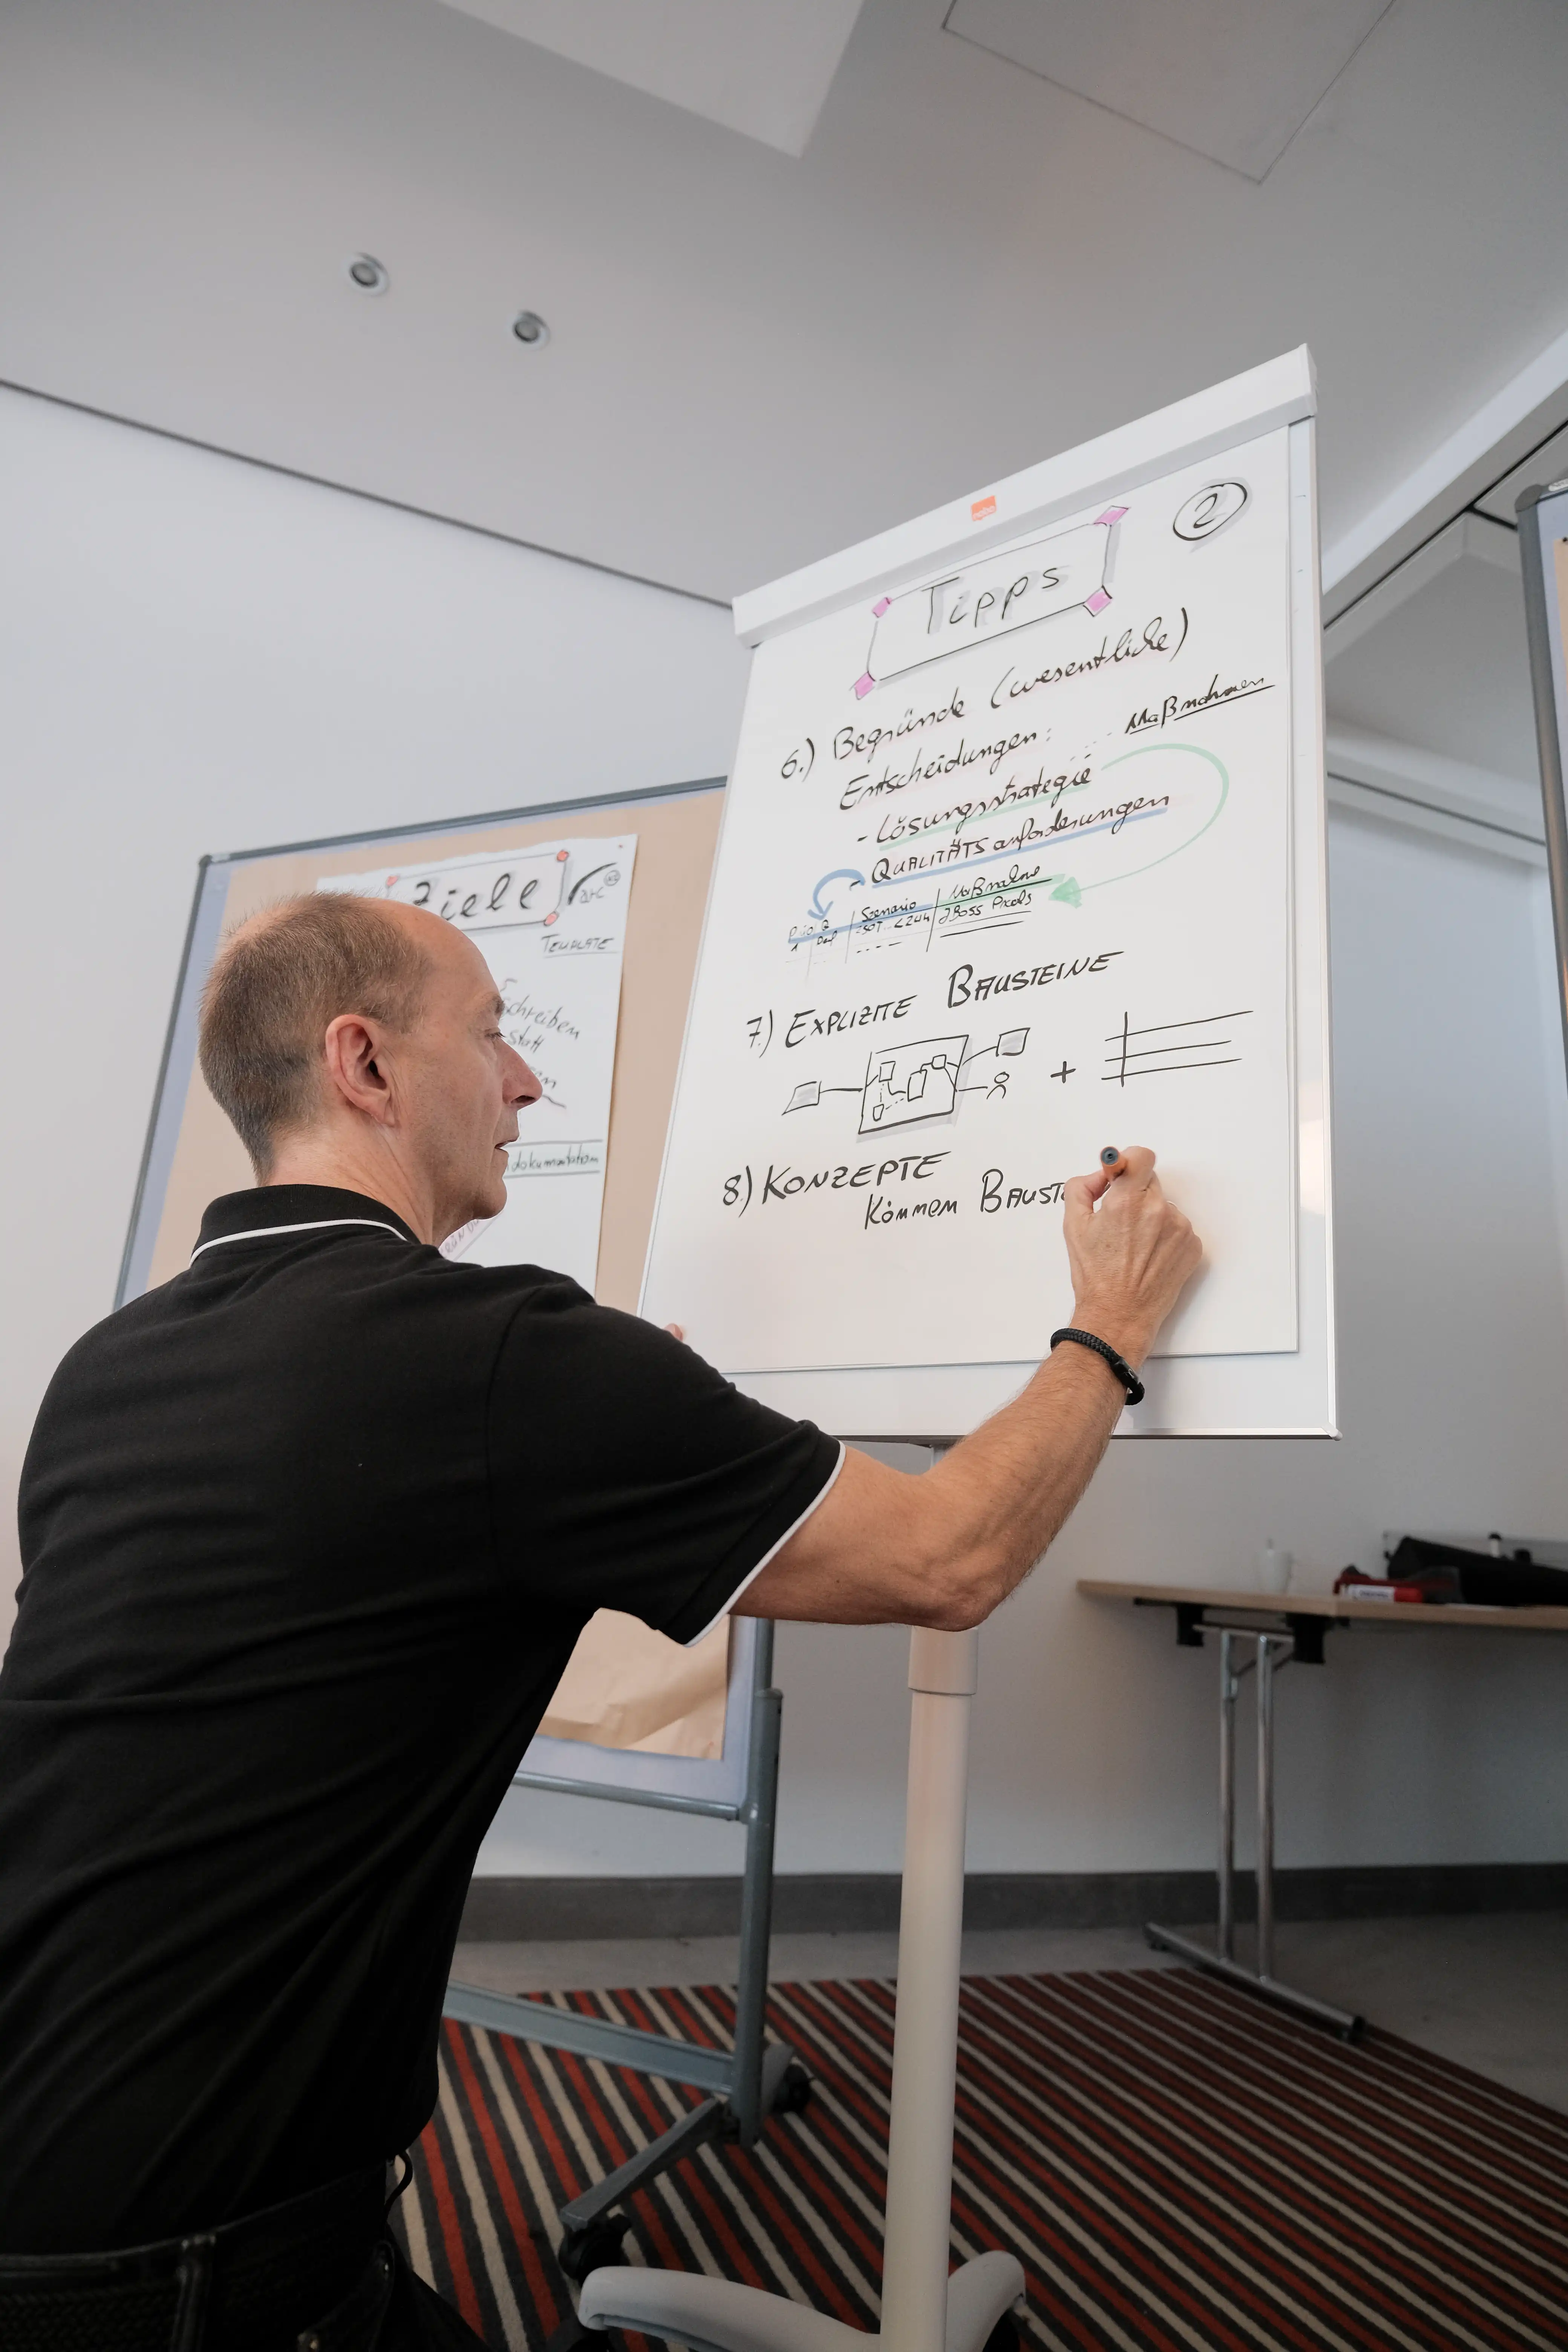 nobo
2
Tipps
6.) Begründe (wesentliche)
Entscheidungen: ... Maßnahmen
- Lösungsstrategie
- QUALITÄTSanforderungen
Prio Q Szenario Maßnahme
1
7.) EXPLIZITE BAUSTEINE
+
8.) KONZEPTE
Können BAUST
Ziele
TEMPLATE
schreiben
statt
dokumentation